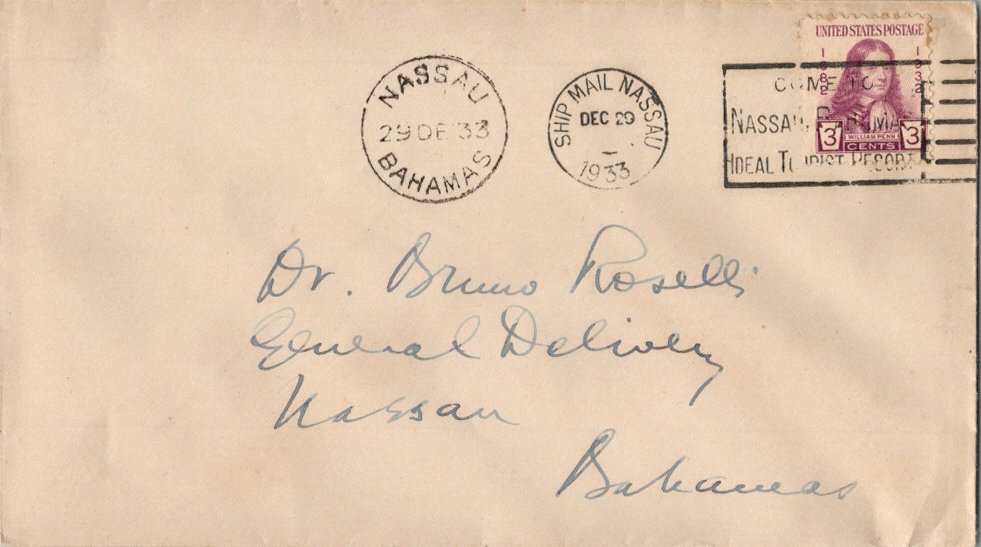 NASSAU
29 DE 33
BAHAMAS
SHIP MAIL NASSAU
DEC 29
1933
UNITED STATES POSTAGE
1682
1932
COME TO
NASSAU, BAHAMAS
IDEAL TOURIST RESORT
3
WILLIAM PENN
3
CENTS
Dr. Bruno Roselli
General Delivery
Nassau
Bahamas